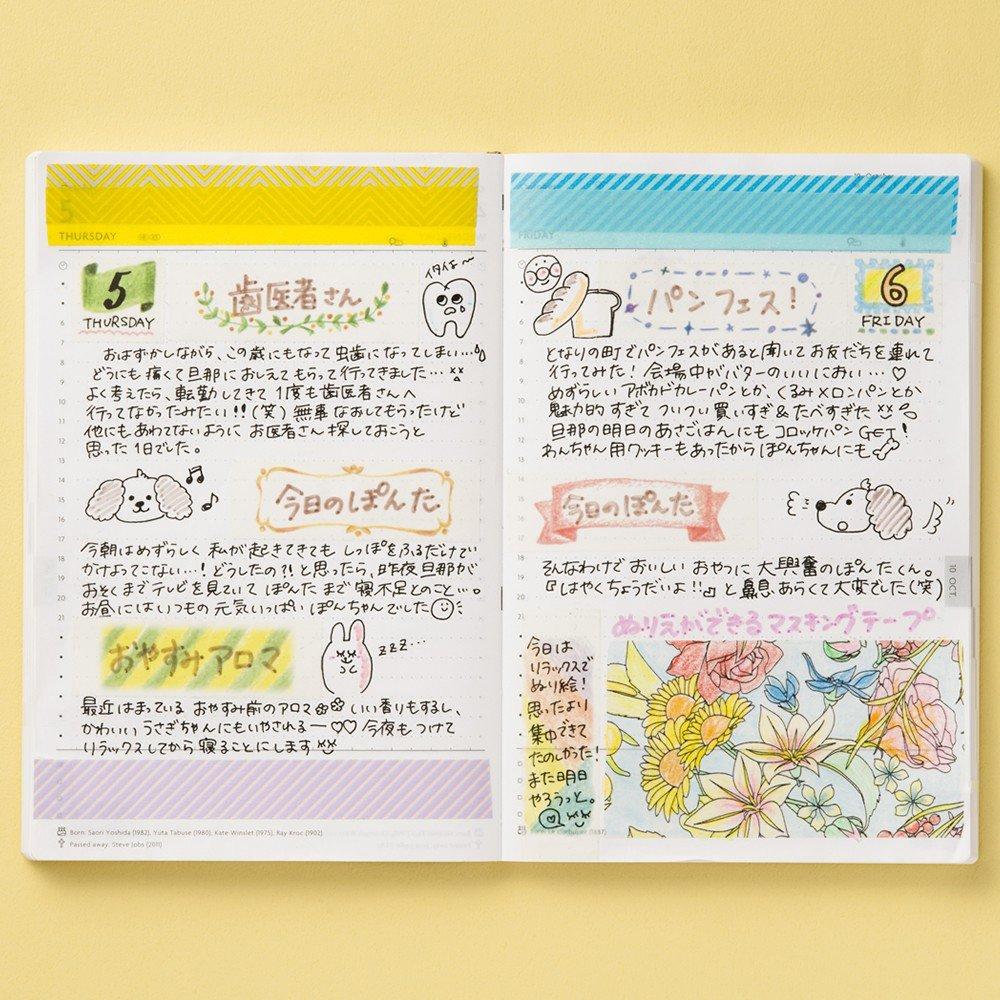 5
THURSDAY
5
THURSDAY
歯医者さん
イタイよ〜
おはずかしながら、この歳にもなって虫歯になってしまい…
どうにも痛くて旦那におしえてもらって行ってきました…
よく考えたら、転勤してきて1度も歯医者さんへ
行ってなかったみたい!!(笑)無事なおしてもらったけど
他にもあわてないようにお医者さん探しておこうと
思った1日でした。
今日のぽんた
今朝はめずらしく私が起きてきてもしっぽをふるだけで
かけよってこない…!どうしたの?!と思ったら、昨夜旦那が
おそくまでテレビを見ていてぽんたまで寝不足とのこと…。
お昼にはいつもの元気いっぱいぽんちゃんでした
おやすみアロマ
zzz…
最近はまっているおやすみ前のアロマ いい香りもするし、
かわいいうさぎちゃんにもいやされるー♡♡今夜もつけて
リラックスしてから寝ることにします
Born: Saori Yoshida (1982), Yuta Tabuse (1980), Kate Winslet (1975), Ray Kroc (1902)
Passed away: Steve Jobs (2011)
FRIDAY
パンフェス!
6
FRIDAY
となりの町でパンフェスがあると聞いてお友だちを連れて
行ってみた!会場中がバターのいいにおい…♡
めずらしいアボカドカレーパンとか、くるみ×ロンパンとか
魅力的すぎてついつい買いすぎ&たべすぎた
旦那の明日のあさごはんにもコロッケパンGET!
わんちゃん用クッキーもあったからぽんちゃんにも
今日のぽんた
そんなわけでおいしいおやつに大興奮のぽんたくん。
『はやくちょうだいよ!!』と鼻息あらくて大変でした(笑)
10 OCT.
ぬりえができるマスキングテープ
今日は
リラックスで
ぬり絵!
思ったより
集中できて
たのしかった!
また明日
やろうっと。